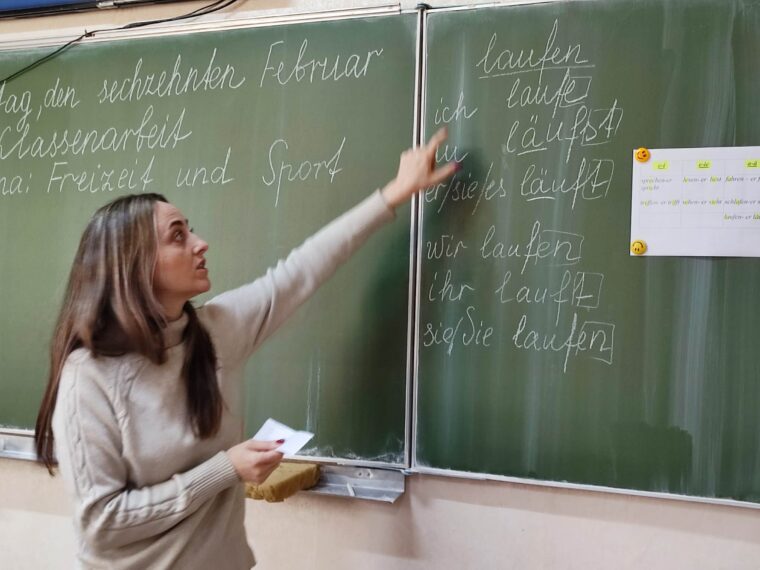 den sechzehnten Februar
Klassenarbeit
Freizeit und Sport
laufen
ich laufe
läufst
er/sie/es läuft
wir laufen
ihr lauft
sie/Sie laufen
e-i e-ie a-ä
sprechen-er lesen- er liest fahren- er
spricht
treffen- er trifft sehen- er sieht schlafen-er
laufen-er